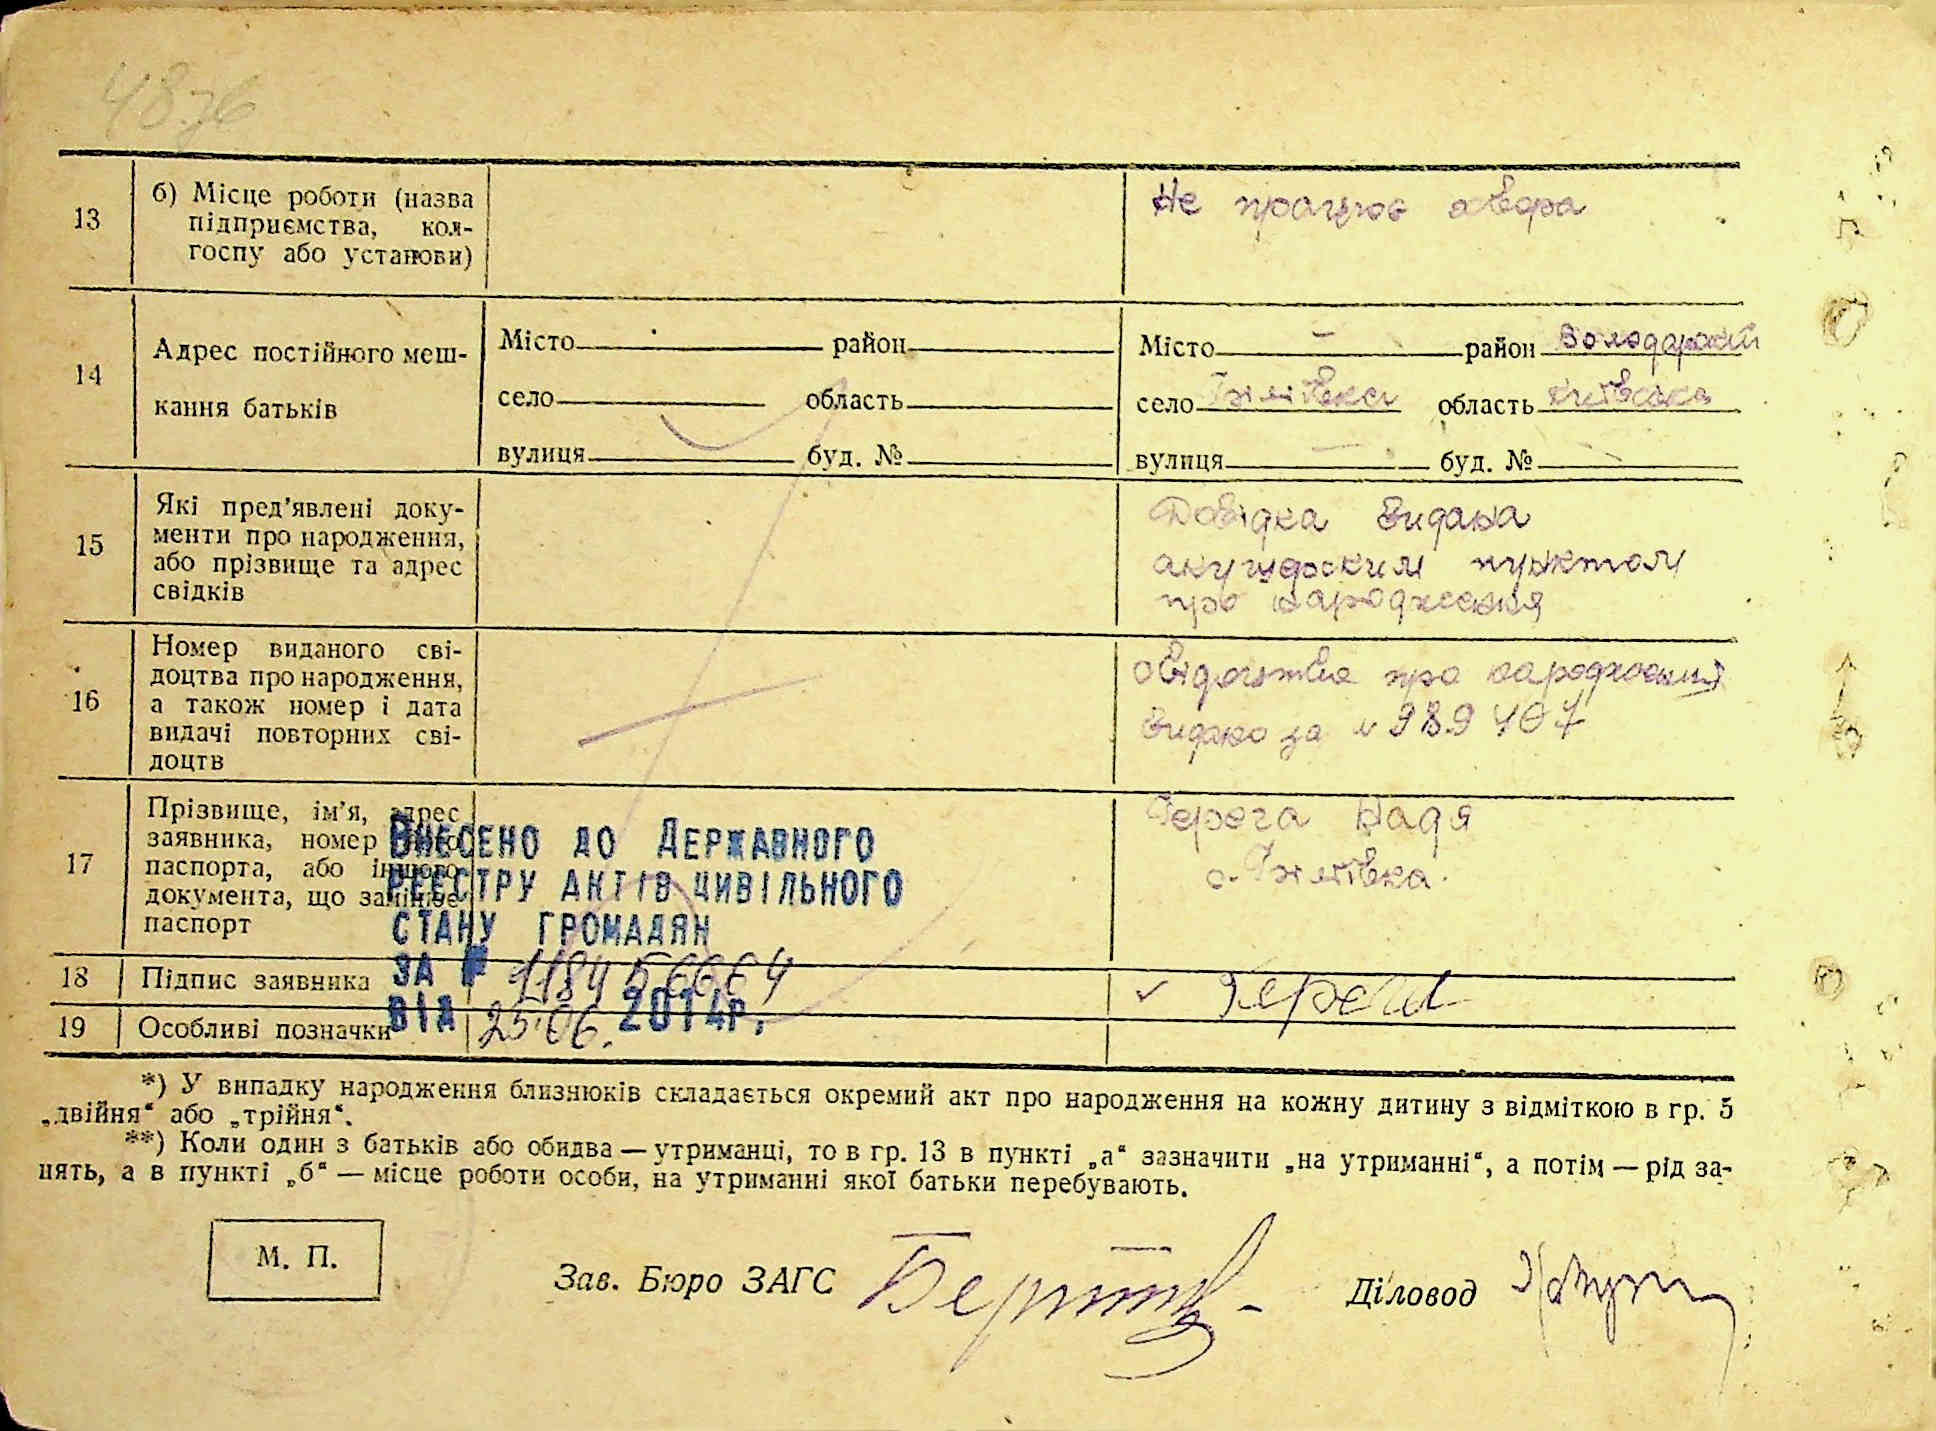 13
б) Місце роботи (назва
підприємства, кол-
госпу або установи)
Не працює хвора
14
Адрес постійного меш-
кання батьків
Місто район
село область
вулиця буд. №
Місто – район Володарский
село Гжитівка область Київська
вулиця – буд. №
15
Які пред'явлені доку-
менти про народження,
або прізвище та адрес
свідків
Довідка видана
акушерским пунктом
про народження
16
Номер виданого сві-
доцтва про народження,
а також номер і дата
видачі повторних сві-
доцтв
про народження
видано за № 989407
17
Прізвище, ім'я, адрес
заявника, номер його
паспорта, або іншого
документа, що замінює
паспорт
Герега Надя
с.
Внесено до Державного
реєстру актів цивільного
стану громадян
за № 118456664
від 25.06. 2014р.
18 Підпис заявника
Герега
19 Особливі позначки
*) У випадку народження близнюків складається окремий акт про народження на кожну дитину з відміткою в гр. 5
„двійня“ або „трійня“.
**) Коли один з батьків або обидва — утриманці, то в гр. 13 в пункті „а“ зазначити „на утриманні“, а потім — рід за-
нять, а в пункті „б“ — місце роботи особи, на утриманні якої батьки перебувають.
М. П.
Зав. Бюро ЗАГС
Діловод